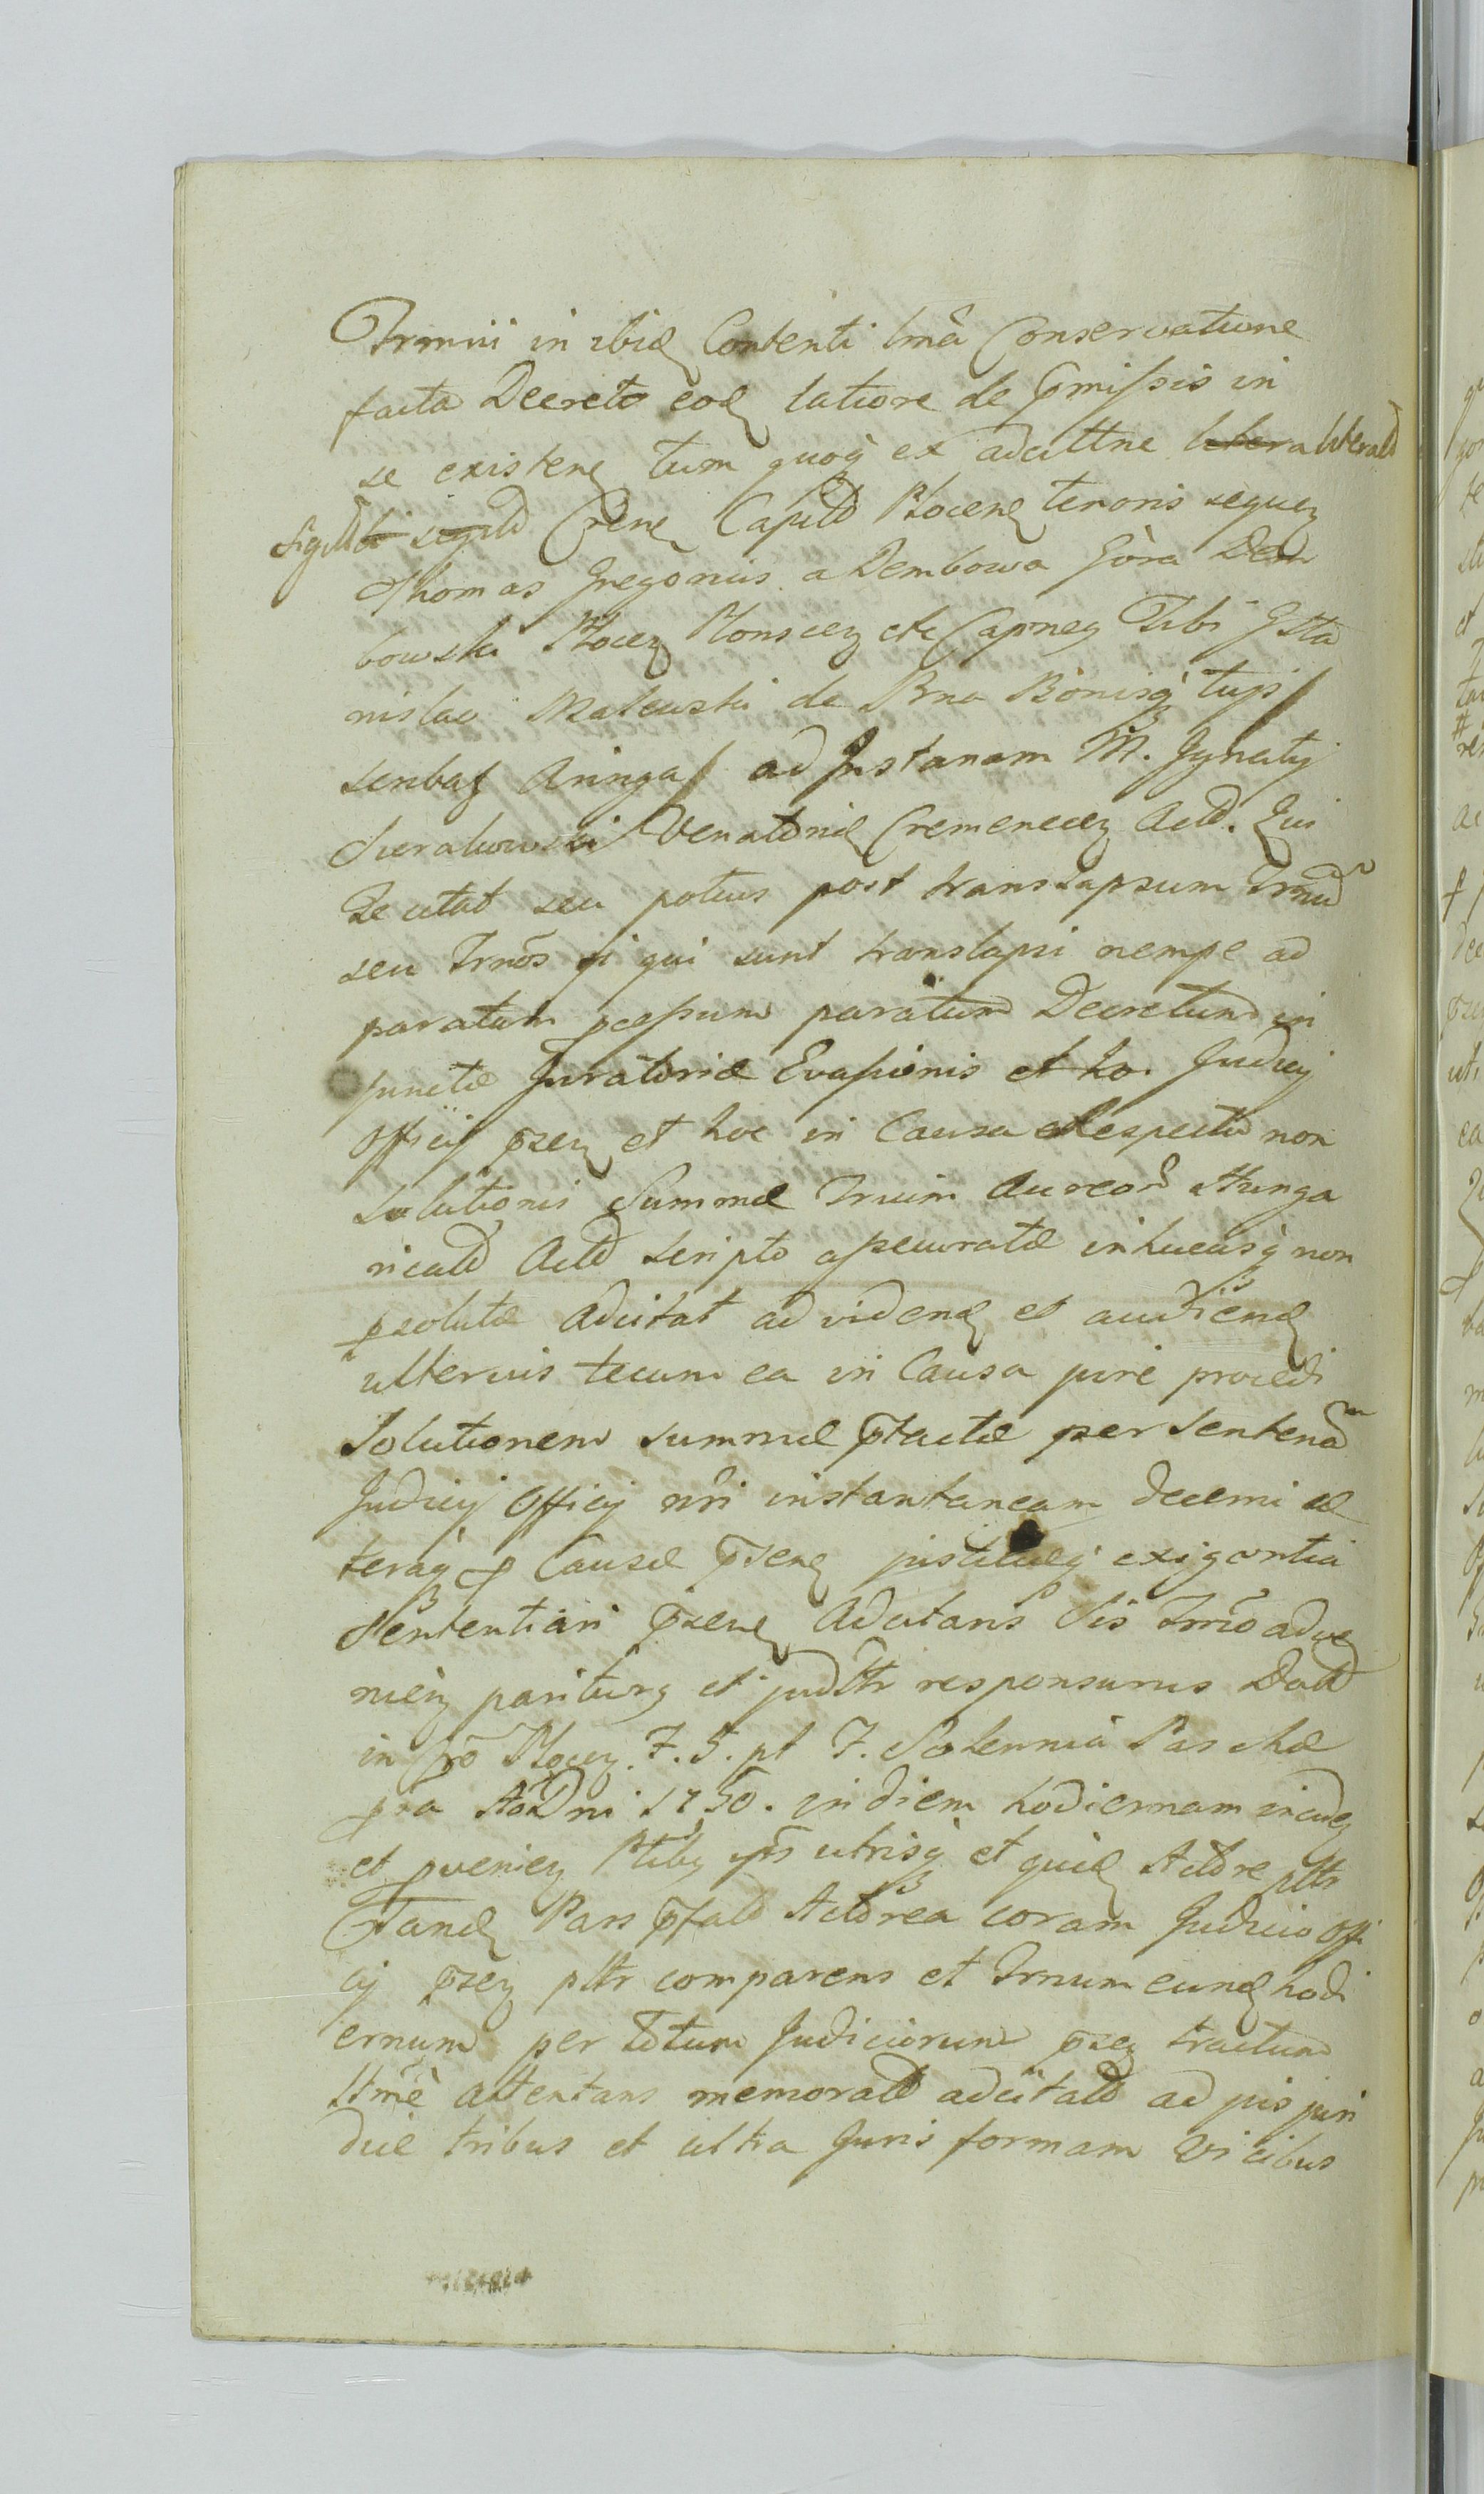 Trmini in ibid Contenti lmã Conservatione
facta Decreto eod latiore de pmissis in
se existenz tum quoq ex adcittne litterald
Sigilld Crene Capitld Plocenz tenoris sequenz
Thomas Gregorius a Dembowa Góra Dem
bowski Plocenz Plonscenz etc Capneus Tibi G Sta
nislao Malewski de Psna Bonisq tuis
senbaf Aringaf ad Instanam M. Ignatij
Sierakowski Venatoris Cremenecenz Actd. Qui
Te citat seu potius post translapsum Trnũ
seu Trnõs si qui sunt translapsi nempe ad
paratum pcessum paratum Decretum in
junctæ Juratoriæ Evasionis et ho. Judicij
Officij psenz et hoc in Causa Respectu non
solutionis Summæ Trium Aureorũ Hunga
ricald Actd scripto assecuratæ inhucusq non
psolutæ Adcitat ad videnđ et audienđ
ulterius tecum ea in Causa jure procedi
Solutionem summæ pfactæ per Sentenam
Judicij Officij nri instantaneam decerni cæ
teraq p Causæ psenz justitiæq exigentia
Sententiari psenz Adcitans Sis Trnio adve
nienz pariturz et judltr responsurus Datt
in Cro Plocenz F. 5. pt F. Solennia Paschæ
pra Ao Dni 1750. in diem hodiernam incidenz
et pvenienz Ptibz ipis utrisq et quid Actore pltr
Tand Pars pfatd Actorea coram Judicio Offi
cij psenz pltr comparens et Trnum eund hodi
ernum per totum Judiciorum psenz tractum
ltme attentans memoratd adcitatd ad jus juri
dice tribus et ultra Juris formam vicibus